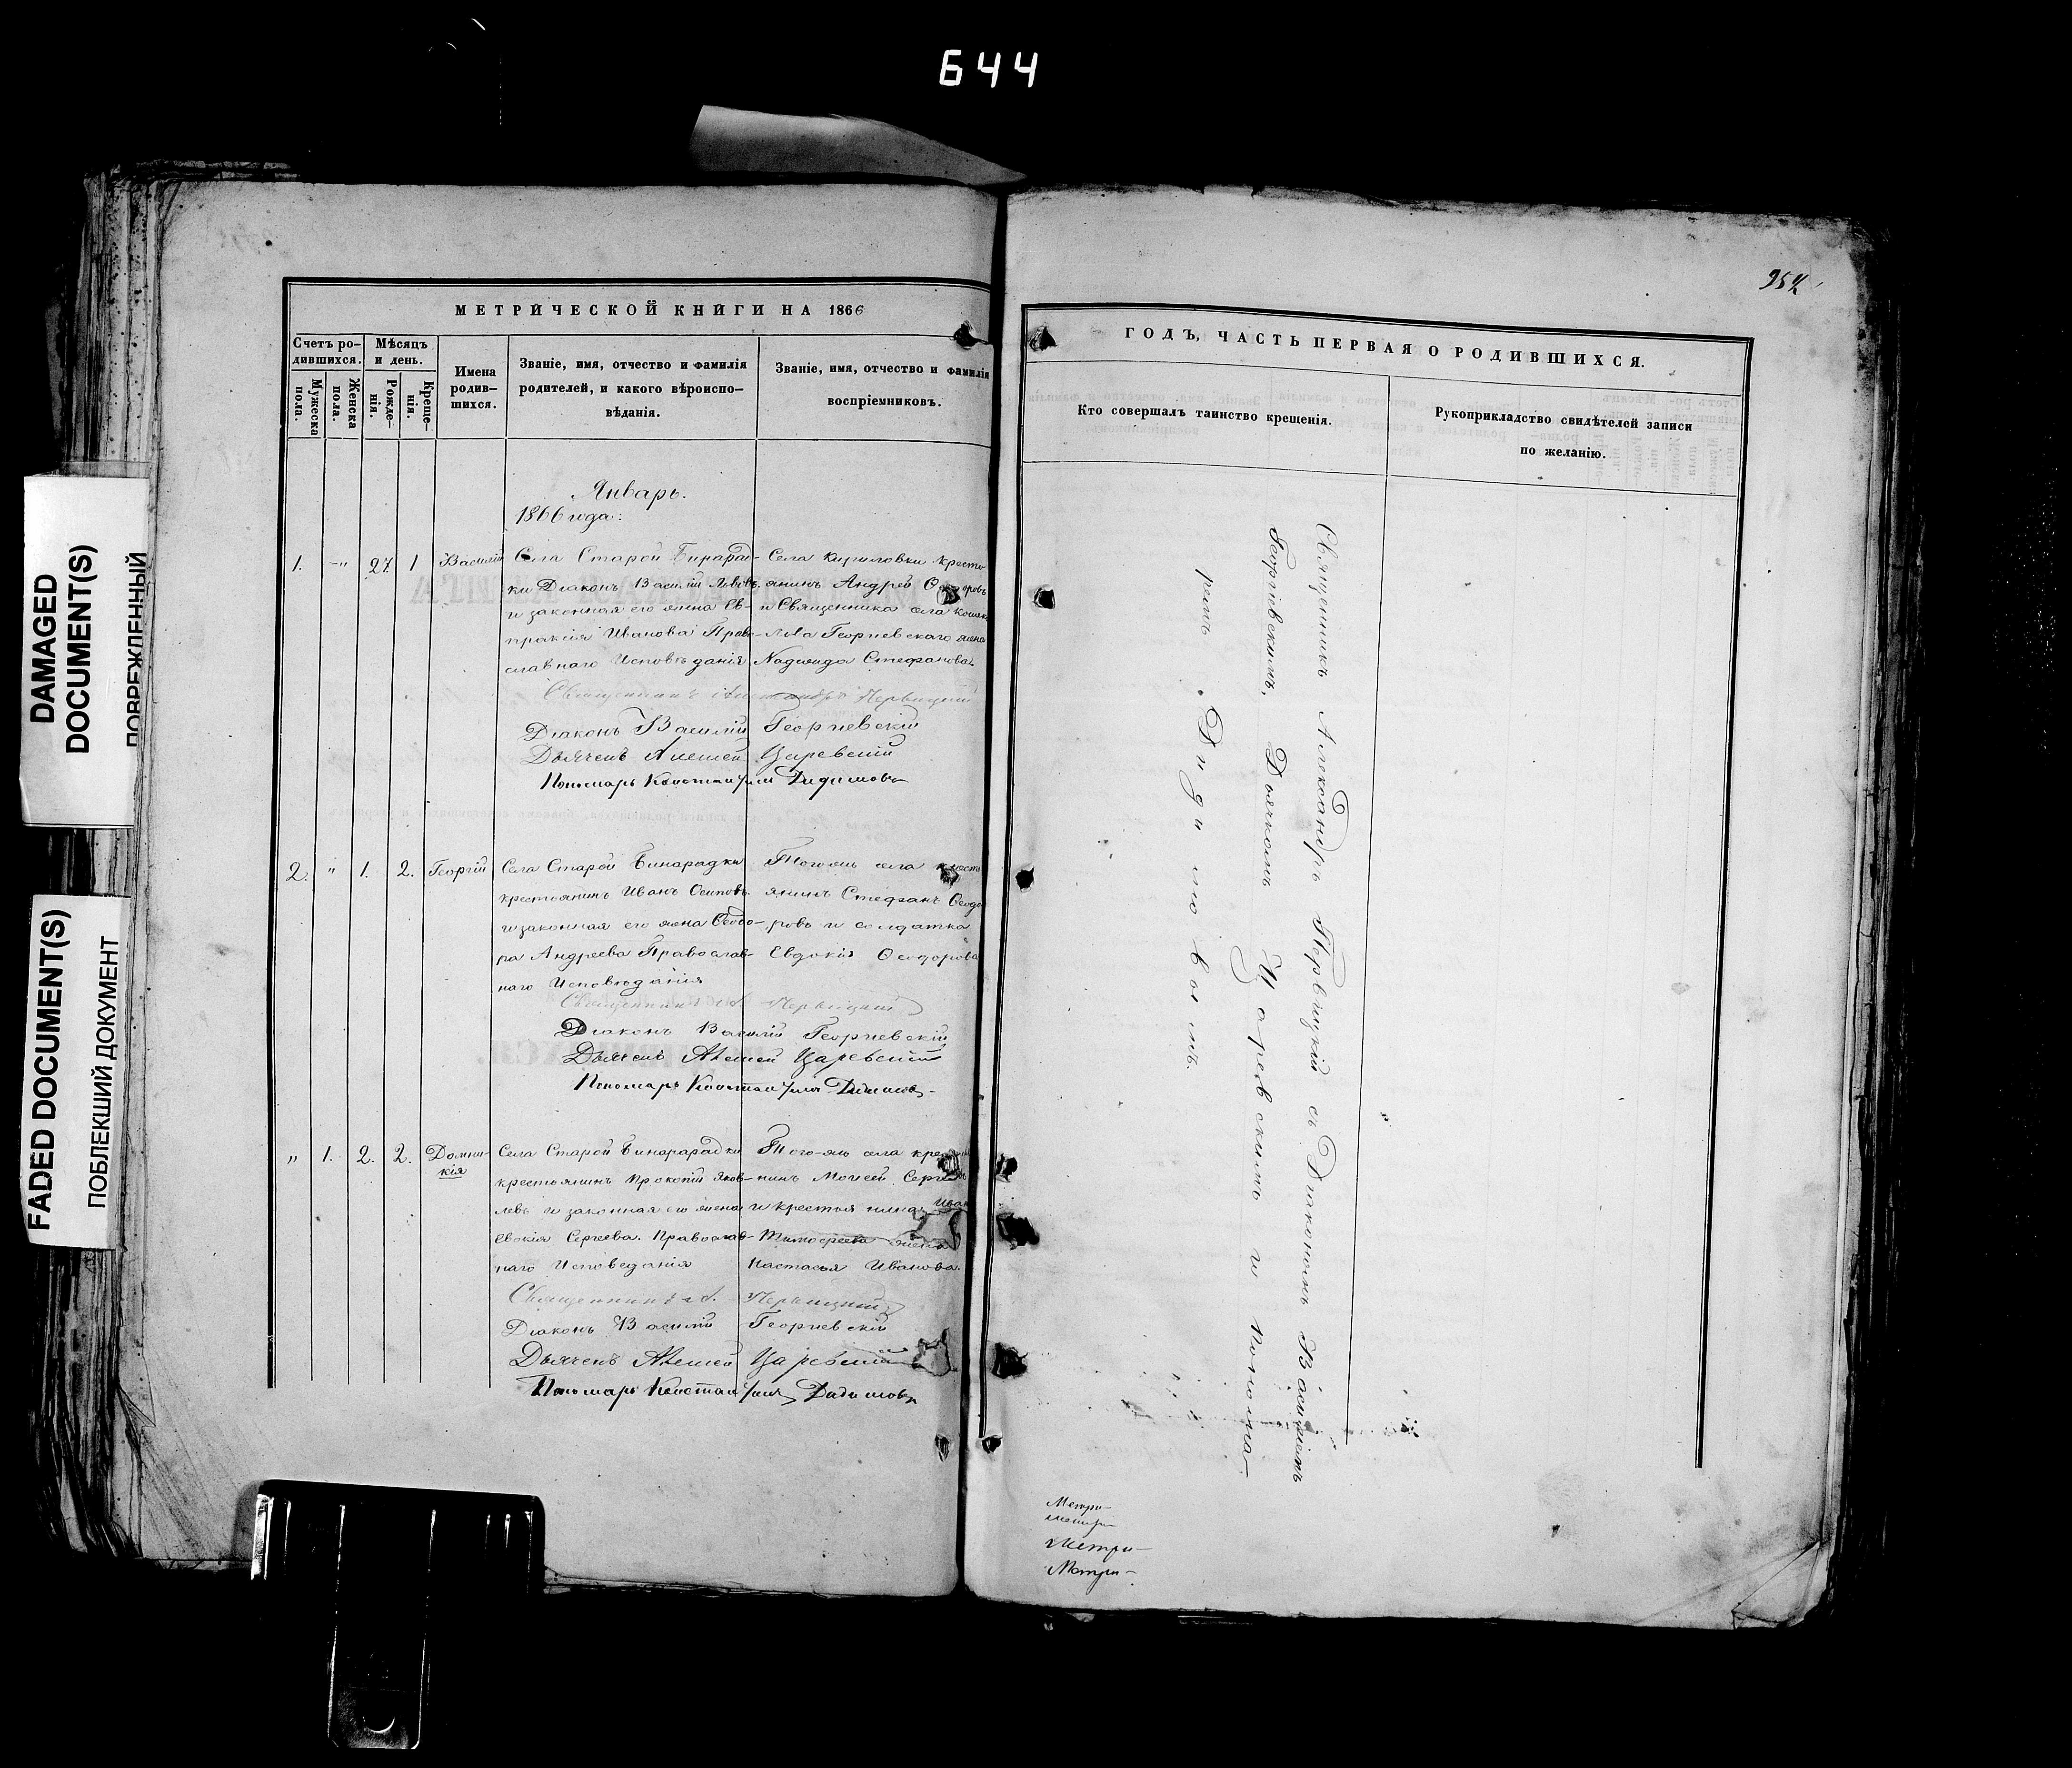 644
DAMAGED
DOCUMENT(S)
ПОВРЕЖДЕННЫЙ
FADED DOCUMENT(S)
ПОБЛЕКШИЙ ДОКУМЕНТ
МЕТРИЧЕСКОЙ КНИГИ НА 1866
Счетъ ро-
дившихся.
Мужеска
пола.
Женска
пола.
Мѣсяцъ
и день.
Рожде-
нія.
Креще-
нія.
Имена
родив-
шихся.
Званіе, имя, отчество и фамилія
родителей, и какого вѣроиспо-
вѣданія.
Званіе, имя, отчество и фамилія
воспріемниковъ.
Январь.
1866 года.
1. -" 27 1 Василій
Села Старой Бинарад-
ки Діаконъ Василій Львовъ
и законная его жена Ев-
праксія Иванова Право-
славнаго Исповѣданія
Села Кириловки кресть-
янинъ Андрей
и Священника села
Георгиевскаго жена
Надежда Стефанова.
Священникъ Александръ Первицкій
Діаконъ Василій Георгиевскій
Дьячекъ Алексей Царевскій
Пономарь Константинъ Дидимовъ
2. " 1. 2. Георгій
Села Старой Бинарадки
крестьянинъ Иванъ Осиповъ
и законная его жена Ѳеодо-
ра Андреева Православ-
наго Исповѣданія
Тогожъ села крест
янинъ Стефанъ Ѳеодо
ровъ и солдатка
Евдокія Ѳеодорова
Священникъ А. Первицкій
Діаконъ Василій Георгиевскій
Дьячекъ Алексей Царевскій
Пономарь Константинъ Дидимовъ
" 1. 2. 2. Домни-
кія
Села Старой Бинарарадки
крестьянинъ Прокопій Яков-
левъ и законная его жена
Евокія Сергеева. Православ-
наго Исповеданія
Того-жъ села
нинъ Моисей
и крестьянина Иван
Тимофеева жена
Настасья Иванова.
Священникъ А. Первицкій
Діаконъ Василій Георгиевскій
Дьячекъ Алексей Царевскій
Пономарь Константинъ Дидимовъ
954
ГОДЪ, ЧАСТЬ ПЕРВАЯ О РОДИВШИХСЯ.
Кто совершалъ таинство крещенія.
Рукоприкладство свидѣтелей записи
по желанію.
Священникъ Александръ Первицкій съ Діакономъ Василіемъ
Георгіевскимъ, Дьячкомъ Царевскимъ и Понома-
ремъ Дидимовымъ.
Метри-
Метри-
Метри-
Метри-